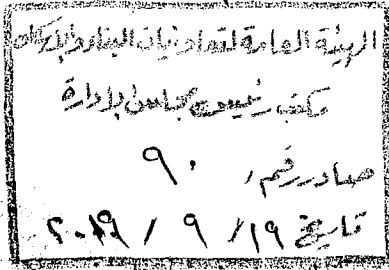 الهيئة العامة لتعاونيات البناء والإسكان
مكتب رئيس مجلس الإدارة
صادر رقم / ٩٠
تاريخ ١٩ / ٩ / ٢٠١٩